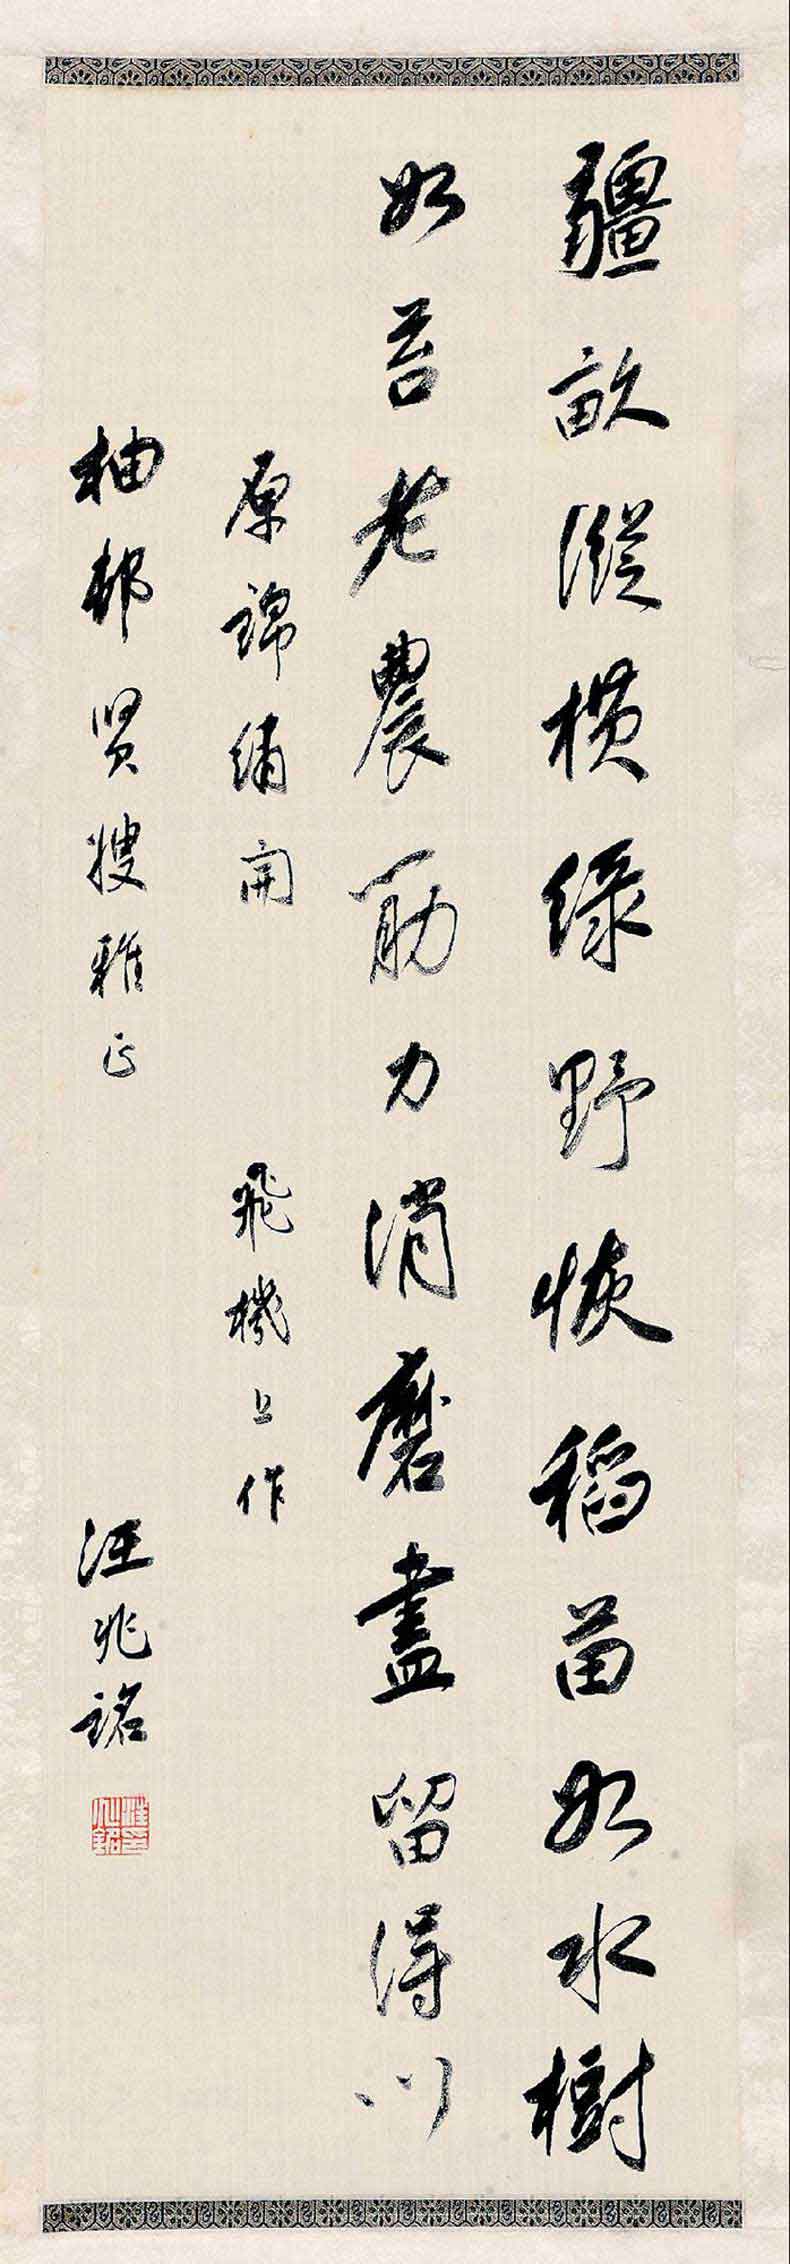 疆畝縱橫綠野恢稻苗如水樹
如苔老農筋力消磨盡留得川
原錦繡開 飛機上作
柚邨賢嫂雅正 汪兆銘
汪兆銘